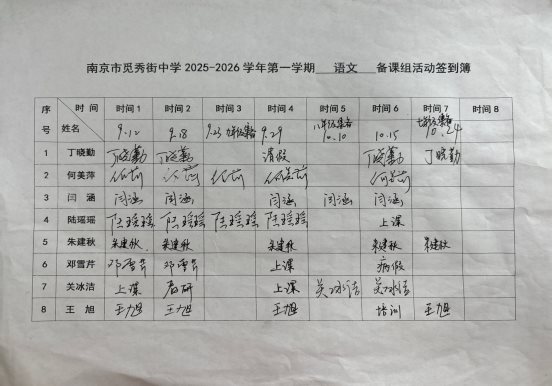 南京市觅秀街中学 2025-2026 学年第一学期 语文 备课组活动签到簿
序号 时间 姓名 时间 1 时间 2 时间 3 时间 4 时间 5 时间 6 时间 7 时间 8
9.12 9.18 9.23 九年级集备 9.29 八年级集备 10.10 10.15 七年级集备 10.24
1 丁晓勤 丁晓勤 丁晓勤 请假 丁晓勤 丁晓勤
2 何美萍 何萍 何萍 何美萍 何美萍
3 闫 涵 闫涵 闫涵 闫涵 闫涵 闫涵
4 陆瑶瑶 陆瑶瑶 陆瑶瑶 陆瑶瑶 陆瑶瑶 上课
5 朱建秋 朱建秋 朱建秋 朱建秋 朱建秋 朱建秋
6 邓雪芹 邓雪芹 邓雪芹 上课 病假
7 关冰洁 上课 教研 上课 关冰洁 关冰洁
8 王 旭 王旭 王旭 王旭 培训 王旭